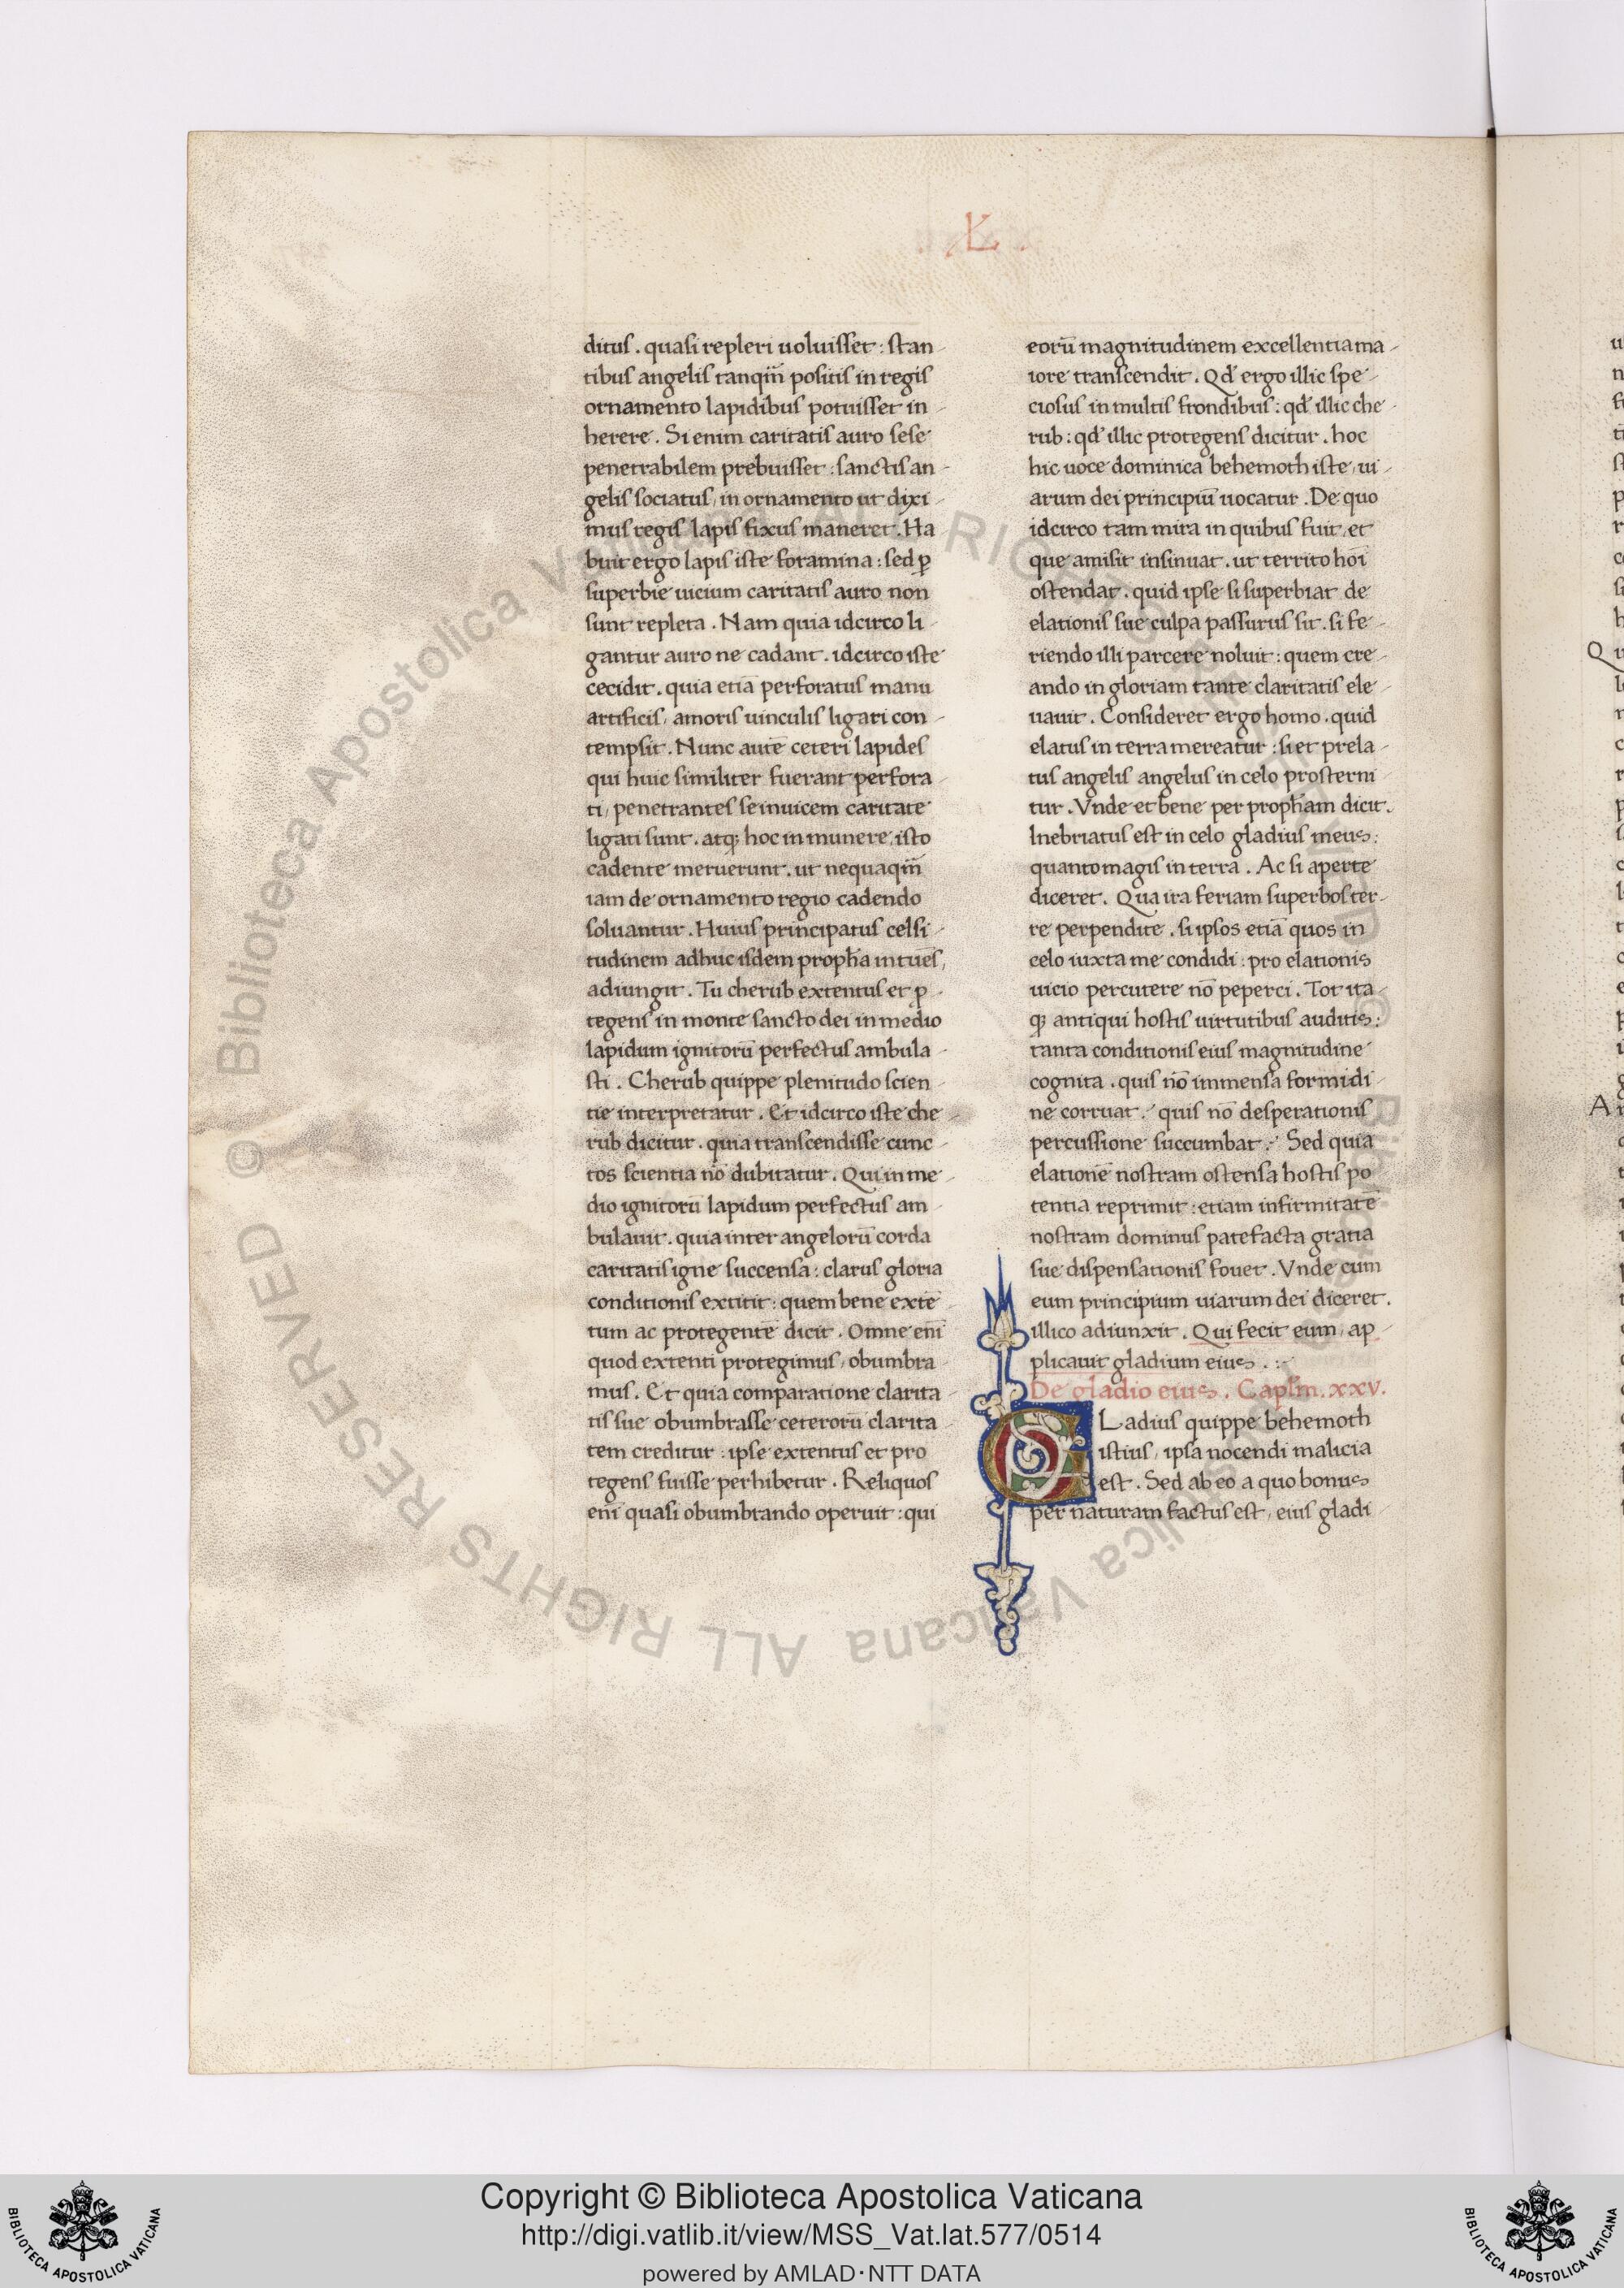 .L.
ditus . quasi repleri uoluisset : stan-
tibus angelis tanqm̄ positis in regis
ornamento lapidibus potuisset in-
herere . Si enim caritatis auro sese
penetrabilem prebuisset : sanctis an-
gelis sociatus, in ornamento ut dixi-
mus regis lapis fixus maneret . Ha
buit ergo lapis iste foramina : sed ꝑ
superbie uicium caritatis auro non
sunt repleta . Nam quia idcirco li-
gantur auro ne cadant . idcirco iste
cecidit . quia etiā perforatus manu
artificis, amoris uinculis ligari con-
tempsit . Nunc autē ceteri lapides
qui huic similiter fuerant perfora-
ti, penetrantes se inuicem caritate
ligati sunt . atq; hoc in munere, isto
cadente meruerunt . ut nequaqm̄
iam de ornamento regio cadendo
soluantur . Huius principatus celsi-
tudinem adhuc isdem proph̄a intues,
adiungit . Tu cherub extentus et ꝓ-
tegens in monte sancto dei in medio
lapidum ignitorū perfectus ambula-
sti . Cherub quippe plenitudo scien-
tie interpretatur . Et idcirco iste che
rub dicitur . quia transcendisse cunc-
tos scientia nō dubitatur . Qui in me-
dio ignitorū lapidum perfectus am-
bulauit . quia inter angelorū corda
caritatis igne succensa : clarus gloria
conditionis extitit : quem bene extē
tum ac protegentē dicit . Omne eni̅
quod extenti protegimus, obumbra-
mus . Et quia comparatione clarita-
tis sue obumbrasse ceterorū clarita-
tem creditur : ipse extentus et pro
tegens fuisse perhibetur . Reliquos
eni̅ quasi obumbrando operuit : qui
eorū magnitudinem excellentia ma-
iore transcendit . Qd̕ ergo illic spe-
ciosus in multis frondibus : qd̕ illic che-
rub : qd̕ illic protegens dicitur . hoc
hic uoce dominica behemoth iste, ui-
arum dei principiū uocatur . De quo
idcirco tam mira in quibus fuit, et
que amisit insinuat . ut territo hoi̅
ostendat . quid ipse si superbiat de
elationis sue culpa passurus sit . si fe-
riendo illi parcere noluit : quem cre-
ando in gloriam tante claritatis ele-
uauit . Consideret ergo homo . quid
elatus in terra mereatur : si et prela-
tus angelis angelus in celo prosterni-
tur . Vnde et bene per proph̄am dicit .
Inebriatus est in celo gladius meus :
quanto magis in terra . Ac si aperte
diceret . Qua ira feriam superbos ter-
re perpendite . si ipsos etiā quos in
celo iuxta me condidi : pro elationis
uicio percutere nō peperci . Tot ita-
q; antiqui hostis uirtutibus auditis :
tanta conditionis eius magnitudine
cognita . quis nō immensa formidi-
ne corruat . quis nō desperationis
percussione succumbat . Sed quia
elationē nostram ostensa hostis po
tentia reprimit : etiam infirmitatē
nostram dominus patefacta gratia
sue dispensationis fouet . Vnde cum
eum principium uiarum dei diceret .
illico adiunxit . Qui fecit eum, ap-
plicauit gladium eius . :-
De gladio eius . Capl̄m . xxv.
GLadius quippe behemoth
istius, ipsa nocendi malicia
est . Sed ab eo a quo bonus
per naturam factus est, eius gladi-
Copyright © Biblioteca Apostolica Vaticana
http://digi.vatlib.it/view/MSS_Vat.lat.577/0514
powered by AMLAD·NTT DATA
BIBLIOTECA APOSTOLICA VATICANA
BIBLIOTECA APOSTOLICA VATICANA
© Biblioteca Apostolica Vaticana ALL RIGHTS RESERVED © Biblioteca Apostolica Vaticana ALL RIGHTS RESERVED